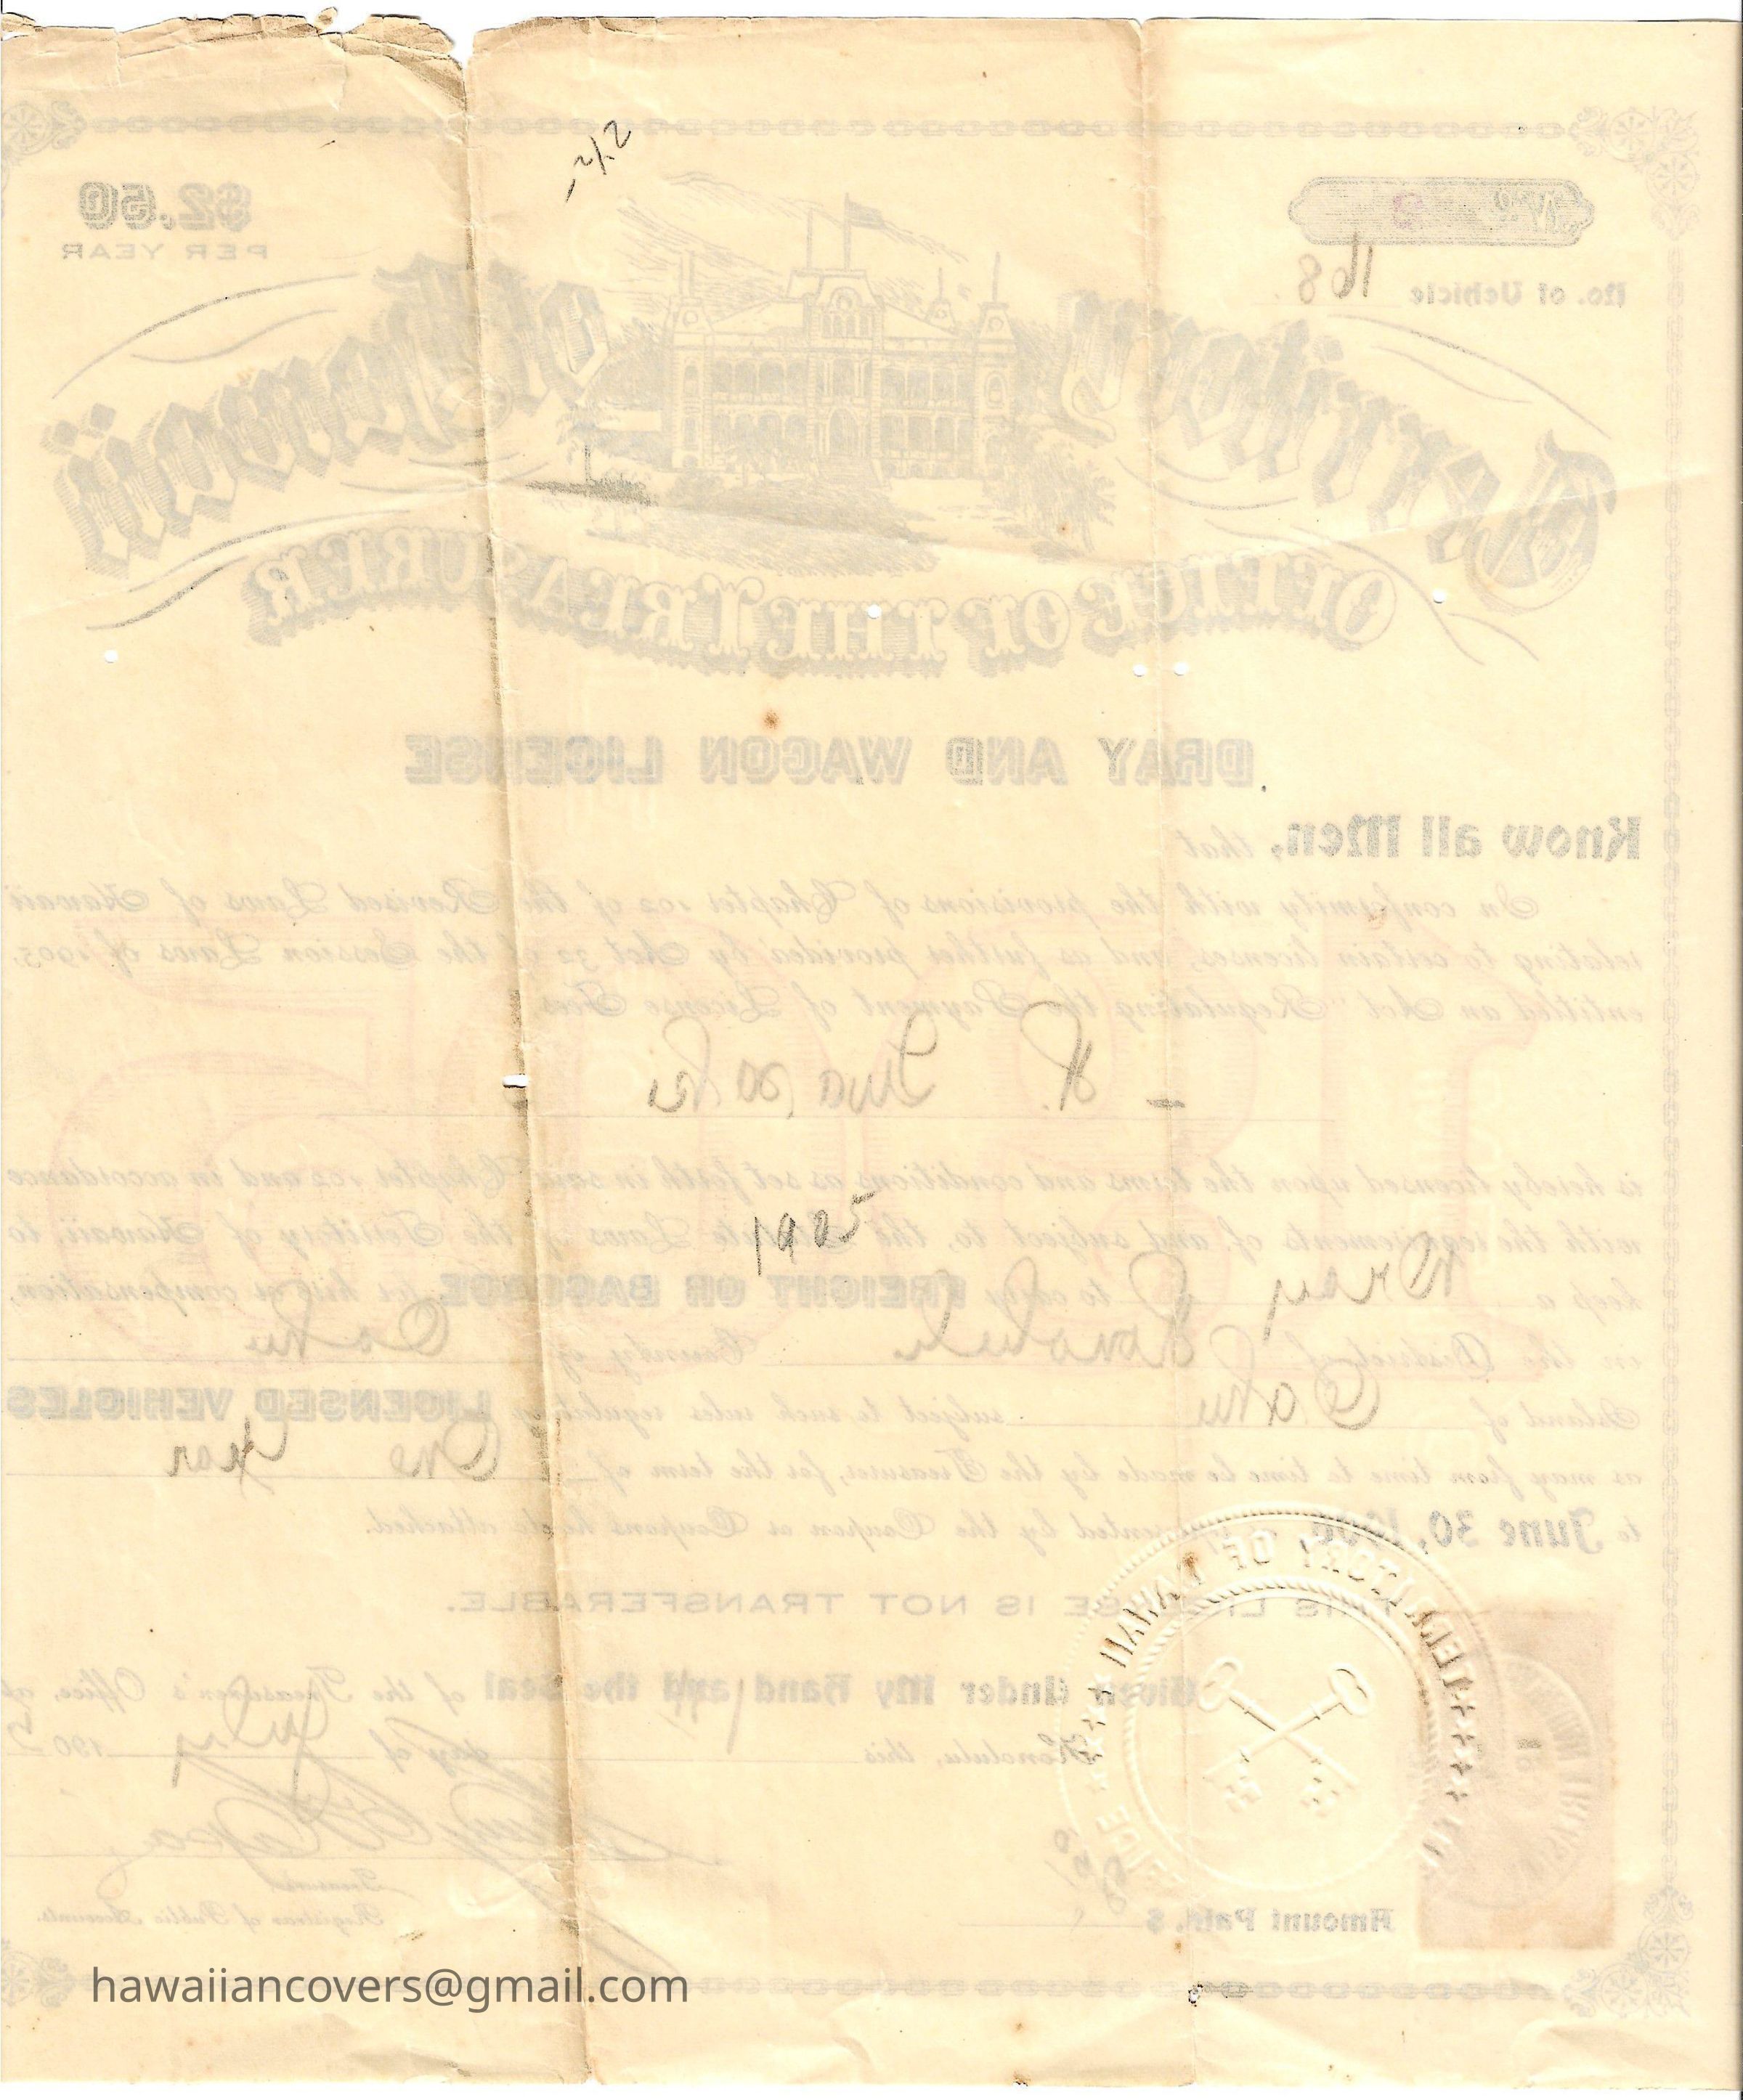 $2.50
PER YEAR
No.
No. of Vehicle 168.
Territory of Hawaii
OFFICE OF THE TREASURER
DRAY AND WAGON LICENSE
Know all Men, that
In conformity with the provisions of Chapter 102 of the Revised Laws of Hawaii
relating to certain licenses, and as further provided by Act 32 of the Session Laws of 1905,
entitled an Act "Regulating the Payment of License Fees
is hereby licensed upon the terms and conditions as set forth in said Chapter 102 and in accordance
1905
with the requirements of, and subject to, the Laws of the Territory of Hawaii, to
keep a Dray to carry FREIGHT OR BAGGAGE, for hire or compensation,
in the District of Honolulu County of Oahu
Island of Oahu subject to such rules regulating LICENSED VEHICLES
as may from time to time be made by the Treasurer, for the term of One Year
to June 30, 1906, represented by the Coupon or Coupons hereto attached.
THIS LICENSE IS NOT TRANSFERABLE.
Given Under My Hand and the Seal of the Treasurer's Office, at
Honolulu, this day of July 1905
Treasurer.
Registrar of Public Accounts.
Amount Paid, $
TERRITORY OF HAWAII
hawaiiancovers@gmail.com